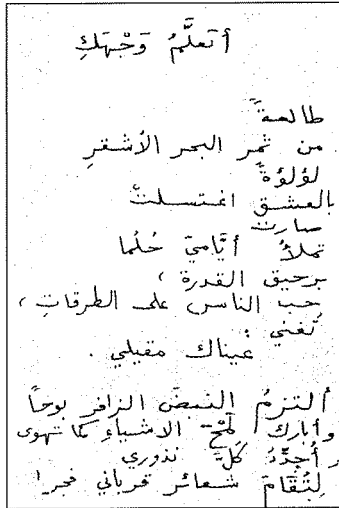 أتعلَّمُ وَجْهَكِ
طالعةً
من ثمر البحر الأشقرِ
لؤلؤةً
بالعشق اغتسلتْ
صارت
تملأُ أيَّاميَ حُلُما
برحيق القدرة ،
حب الناس على الطرقاتِ ،
تغني :
عيناك مقيلي .
ألتزمُ النبضَ الزافر بوحاً
وأبارك لَمْحَ الاشياءِ كما تهوى
و أُجدِّدُ كلَّ نذوري
لِتُقَامَ شعائر قرباني فجرا